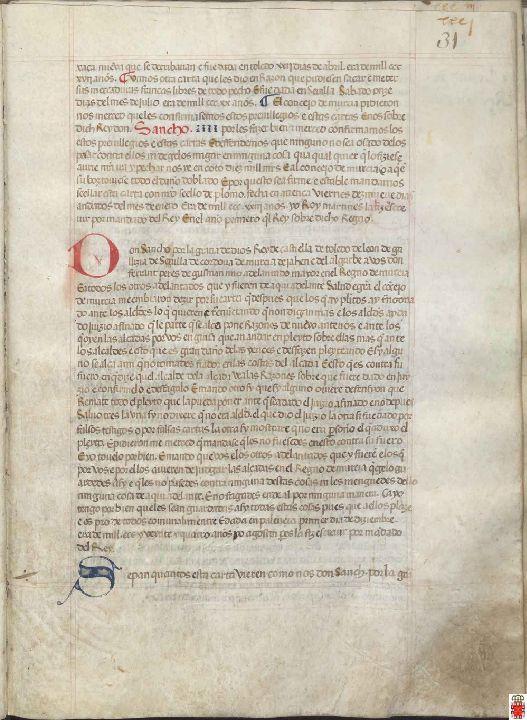 ccc iii
ccci
31
vaca nueva que se derribavan e fue dada en toledo xxvij dias de abril era de mill ccc
xxij anos. Vimos otra carta que les dio en razon que pudiesen sacar e meter
sus mercadurias francas libres de todo pecho. E fue dada en Sevilla Sabado onze
dias del mes de julio era de mill ccc xx anos. El conçejo de murçia pidieron
nos merçed que les confirmasemos estos previllegios e estas cartas E nos sobre
dicho Rey don Sancho IIII por les fazer bien a merçed confirmamos los
estos previllegios e estas cartas E defendemos que ninguno no sea osado delos
pasar contra ellos nin de gelos minguar en ninguna cosa qua qual quier q lo fiziese
avrie nr̃a yra y pechar nos ye en coto diez mill mrs E al conçejo de murçia o a qui
su boz toviese todo el daño doblado E por questo sea firme e estable mandamos
seellar esta carta con nr̃o seello de plomo, fecha en viernes de nueve dias
andados del mes de enero Era de mill ccc xxiij anos yo Roy martines la fiz escre
vir por mandado del Rey En el año primero q̃l Rey sobre dicho Regno
Don Sancho por la graçia de dios Rey de castiella de toledo de leon de ga
llizia de Sevilla de cordova de murçia de jahen e del algarbe a vos don
ferrant peres de gusman mio adelantado mayor en el Regno de murçia
E a todos los otros adelantados que y fueren de aqui adelante Salud e graçia El conçejo
de murçia me embiaron dezir por su carta q̃ despues que los q̃ an plitos
do ante los aldes lo q̃ quieren e
do juizio afinado q̃ le parte q̃ se alça pone Razones de nuevo ante vos e ante los
q̃ oyen las alçadas por vos en guisa que an andar en pleyto sobre ellas mas q̃ ante
los alcaldes e esto que es grant daño delas partes e despechan pleyteando E sy algu
no se alça aun q̃ no tomades nada en las costas del alçada E esto q̃ es contra su
fuero en q̃ dize q̃ el alcalde dela alçada vea las Razones sobre que fue dado en juy
zio e confirmelo o desfagalo E mando otro sy que sy alguno oviere
Remate todo el pleyto que la pueda poner ante q̃ sea dado el juizio afinado e no despues
Salvo tres la una sy no oviere q̃ no era alde el que dio el juizio la otra si fue dado por
falsos testigos o por falsas cartas la otra sy mostrare que no era personero el q̃ traxo el
pleyto. E pidieron me merçed q̃ mandase q̃ les no fuesedes en esto contra su fuero
E yo tovelo por bien. E mando que vos e los otros adelantados que y fuere e los q̃
por vos e por ellos ovieren de judgar las alçadas en el Regno de murçia q̃ gelo gu
ardedes asy e q̃ les no pasedes contra ninguna destas cosas ni les mengüedes dello
ninguna cosa de aqui adelante. E no fagades ende al por ninguna manera. Ca yo
tengo por bien que les sean guardadas asy todas estas cosas pues que a dios plaze
e es pro de todos comunalmente E dada en palençia primer dia de dizienbre
era de mill ccc e veynte e quatro años yo agostin pes la fiz escrevir por mandado
del Rey.
Sepan quantos esta carta vieren como nos don Sancho por la gra